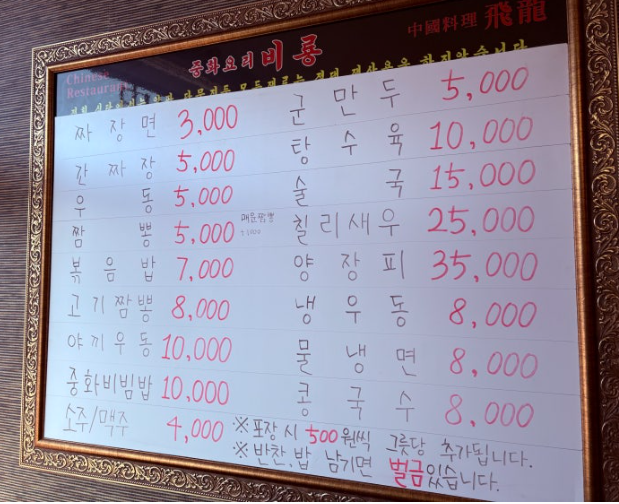 中國料理 飛龍
중화요리 비룡
Chinese
Restaurant
짜장면 3,000
간짜장 5,000
우동 5,000
짬뽕 5,000
볶음밥 7,000
고기짬뽕 8,000
야끼우동 10,000
중화비빔밥 10,000
소주/맥주 4,000
군만두 5,000
탕수육 10,000
술국 15,000
칠리새우 25,000
양장피 35,000
냉우동 8,000
물냉면 8,000
콩국수 8,000
※포장시 500원씩 그릇당 추가됩니다.
※반찬.밥 남기면 벌금있습니다.